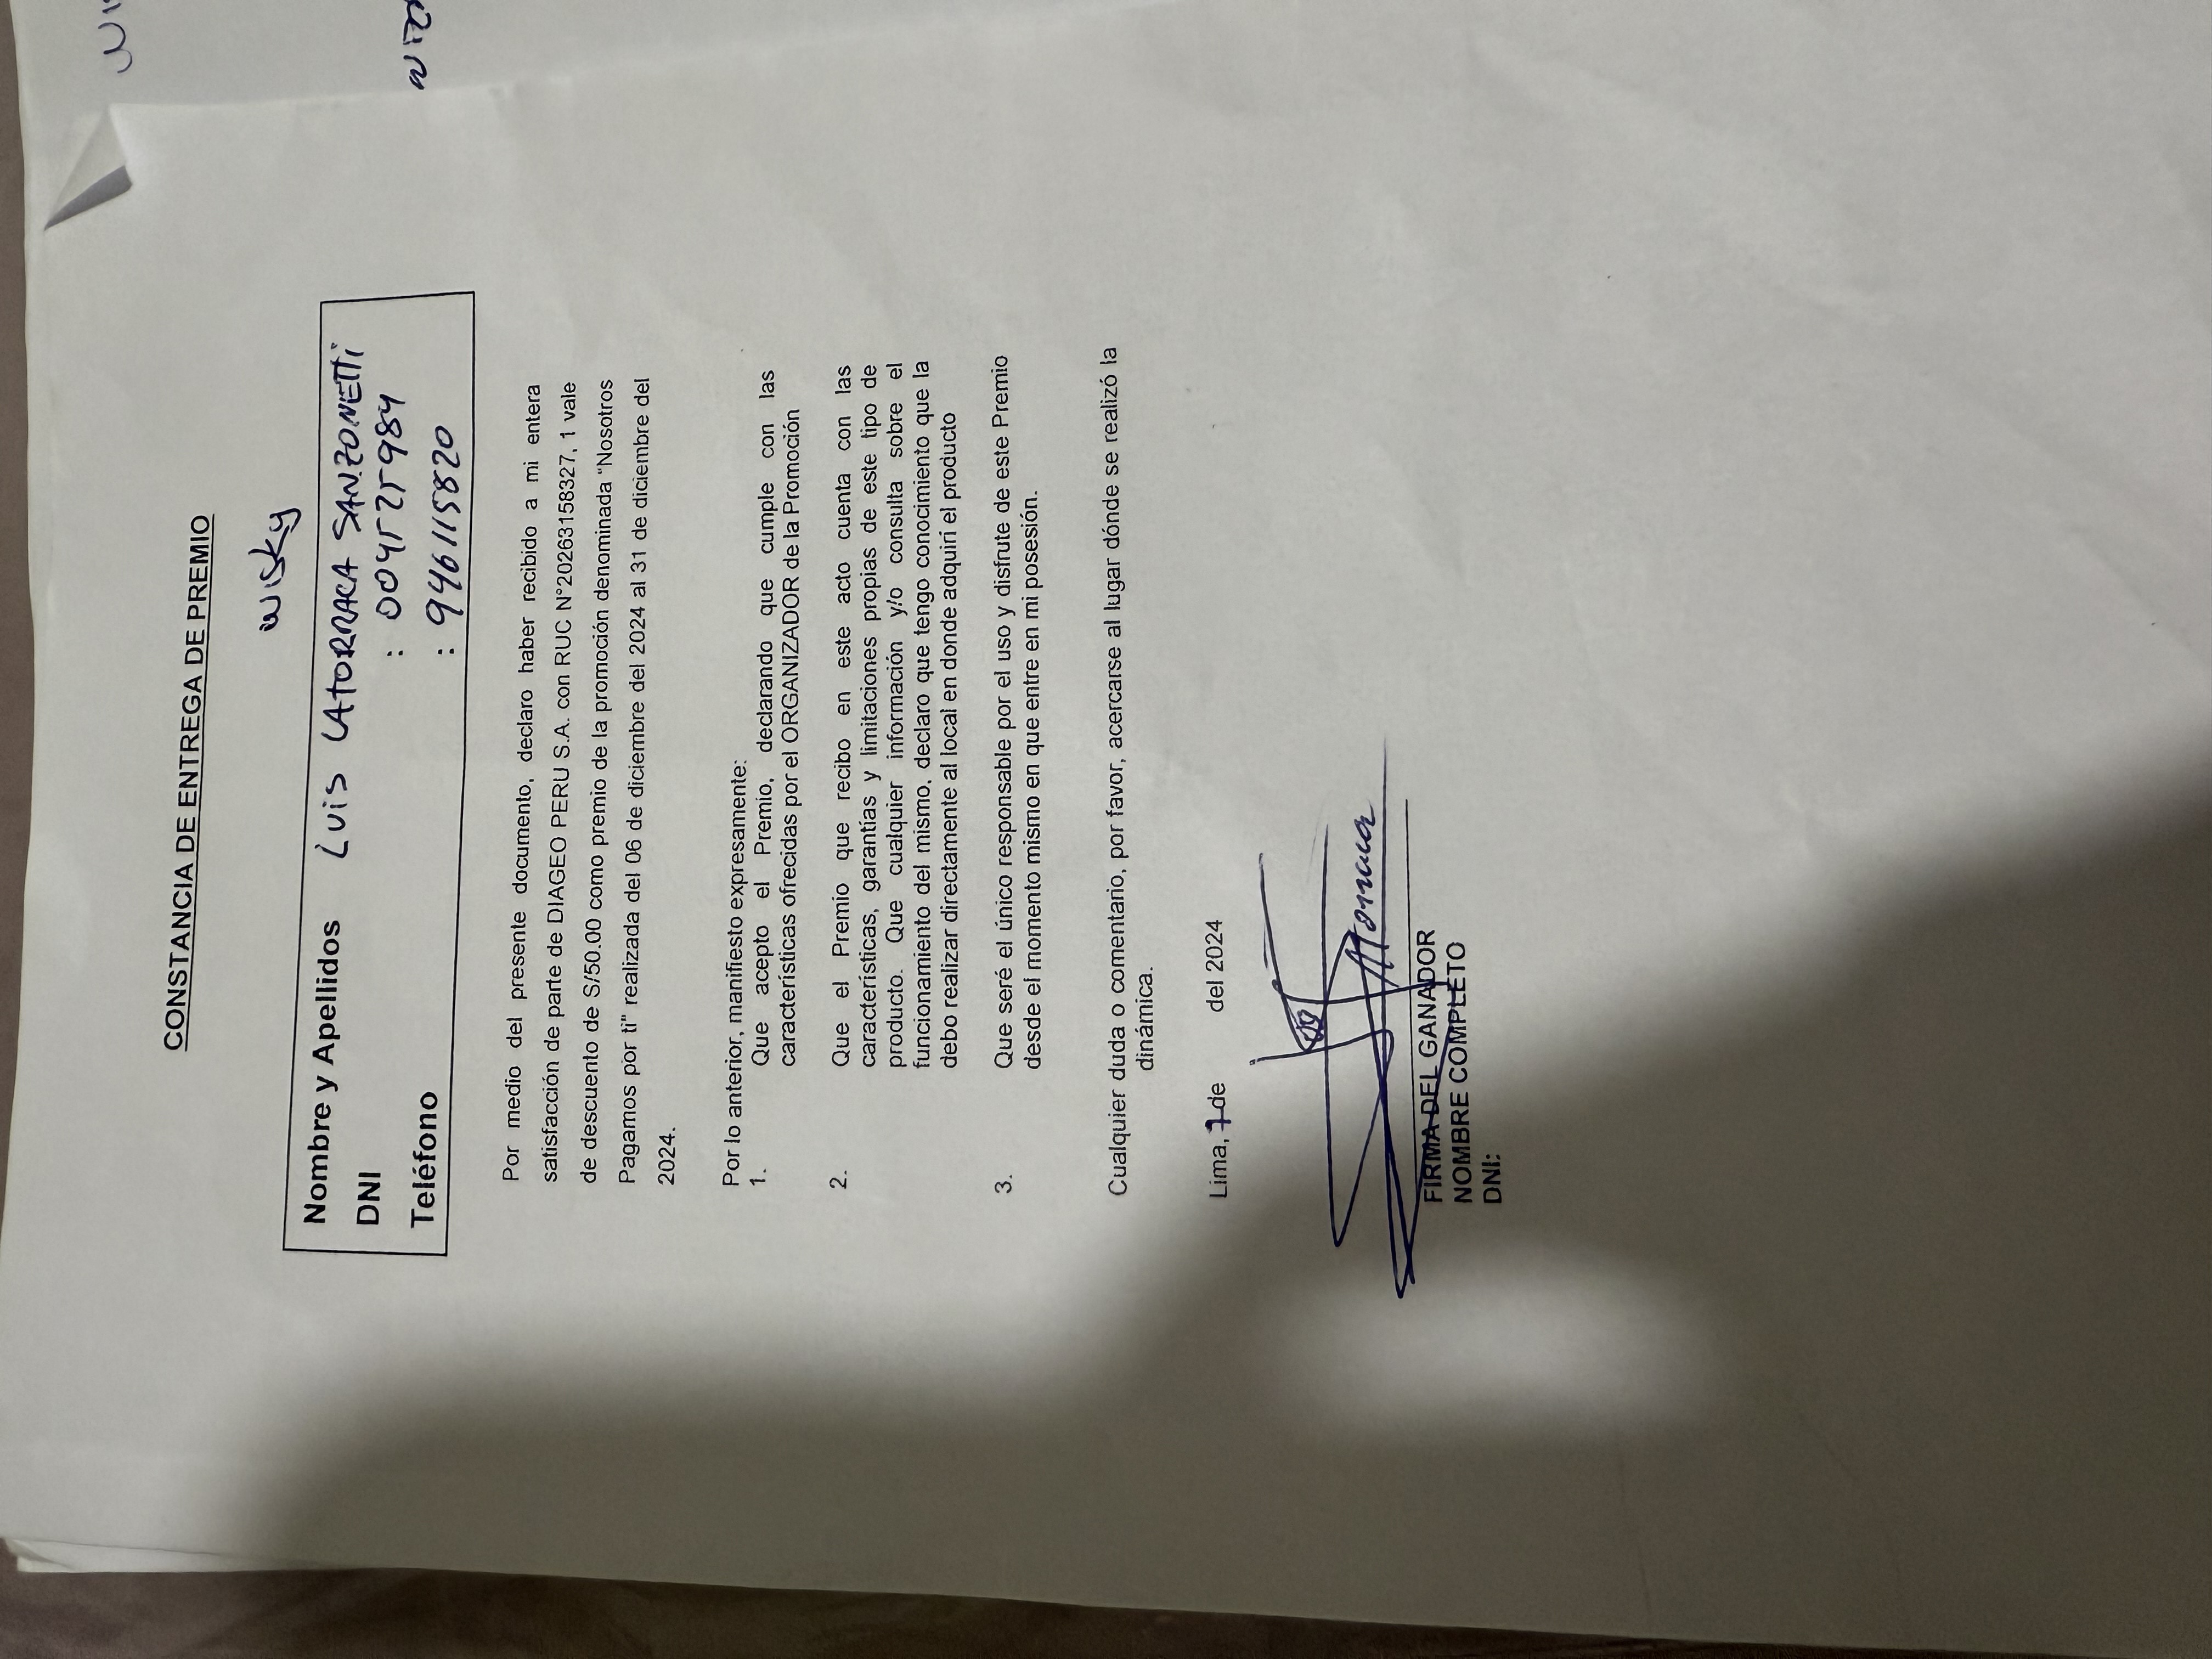 CONSTANCIA DE ENTREGA DE PREMIO
wisky
Nombre y Apellidos LUIS LATORRACA SANZONETTI
DNI : 004525984
Teléfono : 946115820
Por medio del presente documento, declaro haber recibido a mi entera
satisfacción de parte de DIAGEO PERU S.A. con RUC N°20263158327, 1 vale
de descuento de S/50.00 como premio de la promoción denominada “Nosotros
Pagamos por ti” realizada del 06 de diciembre del 2024 al 31 de diciembre del
2024.
Por lo anterior, manifiesto expresamente:
1. Que acepto el Premio, declarando que cumple con las
características ofrecidas por el ORGANIZADOR de la Promoción
2. Que el Premio que recibo en este acto cuenta con las
características, garantías y limitaciones propias de este tipo de
producto. Que cualquier información y/o consulta sobre el
funcionamiento del mismo, declaro que tengo conocimiento que la
debo realizar directamente al local en donde adquirí el producto
3. Que seré el único responsable por el uso y disfrute de este Premio
desde el momento mismo en que entre en mi posesión.
Cualquier duda o comentario, por favor, acercarse al lugar dónde se realizó la
dinámica.
Lima, 7 de del 2024
FIRMA DEL GANADOR
NOMBRE COMPLETO
DNI: